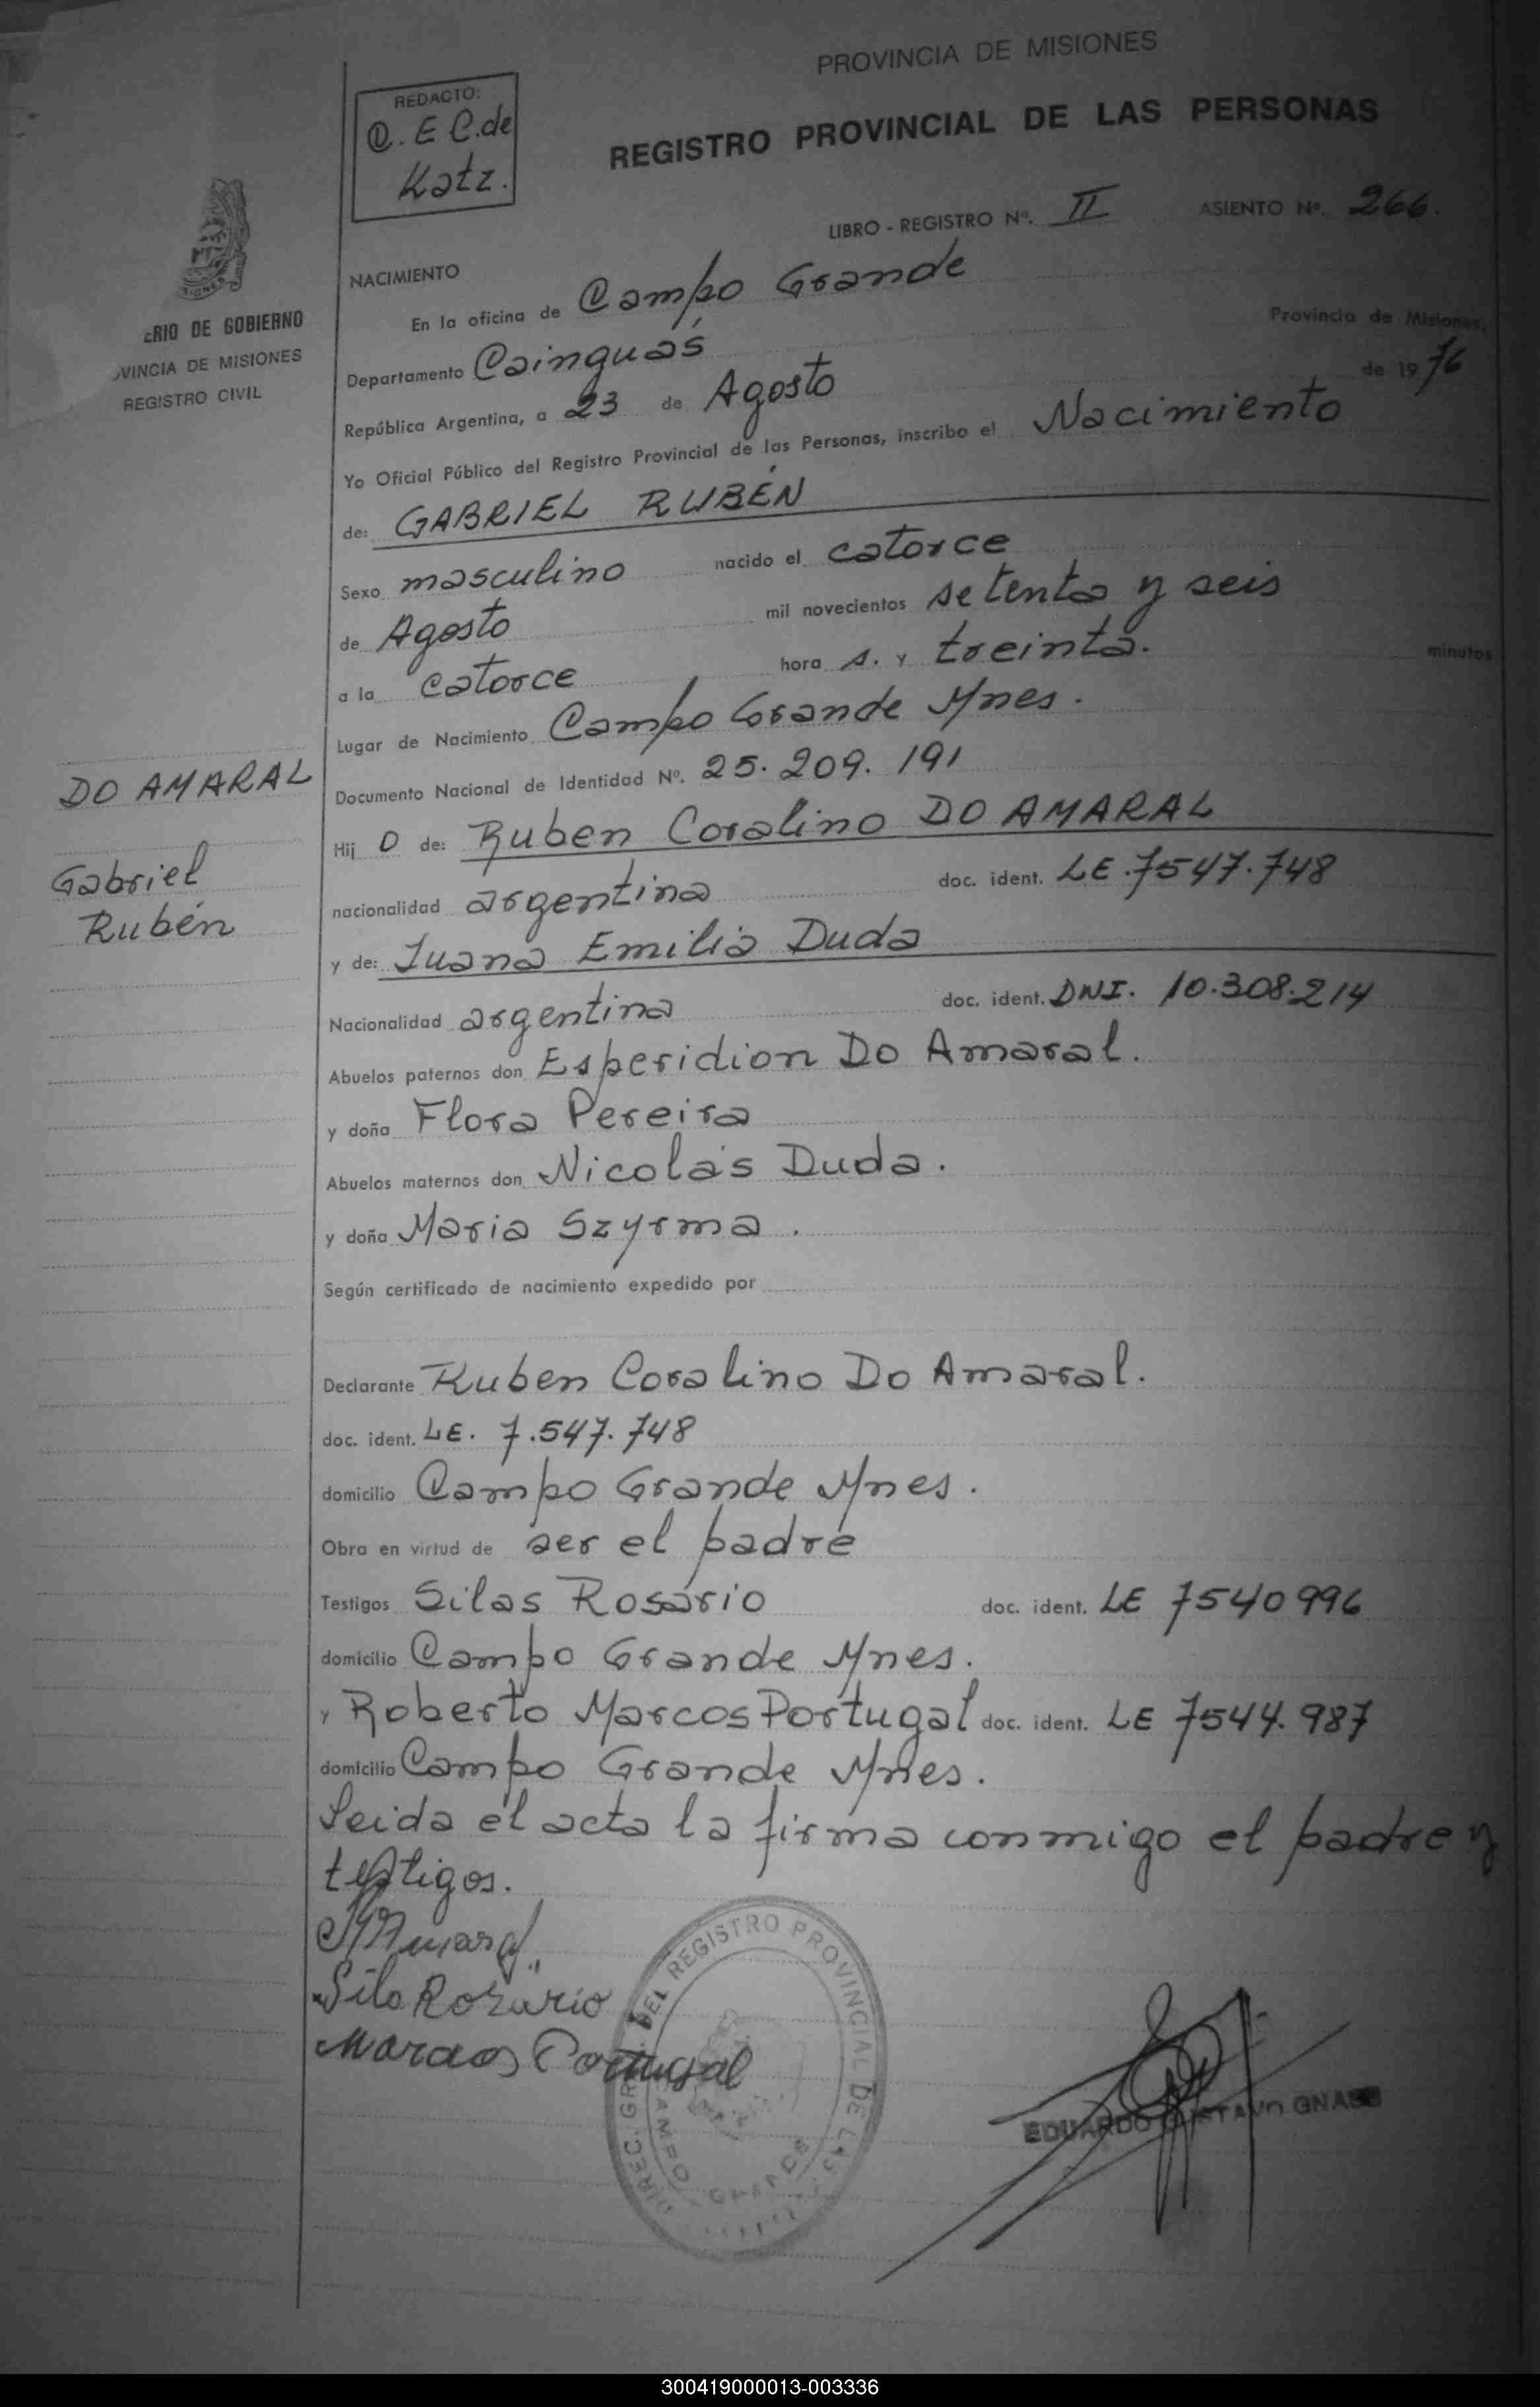 PROVINCIA DE MISIONES
REDACTO:
C. E C. de
Katz.
REGISTRO PROVINCIAL DE LAS PERSONAS
LIBRO - REGISTRO Nº. II ASIENTO Nº. 266.
ERIO DE GOBIERNO
VINCIA DE MISIONES
REGISTRO CIVIL
NACIMIENTO
En la oficina de Campo Grande
Departamento Cainguás Provincia de Misiones,
República Argentina, a 23 de Agosto de 1976
Yo Oficial Público del Registro Provincial de las Personas, inscribo el Nacimiento
de: GABRIEL RUBÉN
Sexo masculino nacido el catorce
de Agosto mil novecientos setenta y seis
a la catorce hora s. y treinta. minutos
Lugar de Nacimiento Campo Grande Mnes.
Documento Nacional de Identidad Nº. 25.209.191
DO AMARAL
Gabriel
Rubén
Hij o de: Ruben Coralino DO AMARAL
nacionalidad argentina doc. ident. LE.7547.748
y de: Juana Emilia Duda
Nacionalidad argentina doc. ident. DNI. 10.308.214
Abuelos paternos don Esperidion Do Amaral.
y doña Flora Pereira
Abuelos maternos don Nicolás Duda.
y doña Maria Szyrma.
Según certificado de nacimiento expedido por
Declarante Ruben Coralino Do Amaral.
doc. ident. LE. 7.547.748
domicilio Campo Grande Mnes.
Obra en virtud de ser el padre
Testigos Silas Rosário doc. ident. LE 7540996
domicilio Campo Grande Mnes.
y Roberto Marcos Portugal doc. ident. LE 7544.987
domicilio Campo Grande Mnes.
Leida el acta la firma conmigo el padre y
testigos.
Amaral
Sila Rozario
Marcos Portugal
DIREC. GRAL. DEL REGISTRO PROVINCIAL DE LAS
CAMPO GRANDE
EDUARDO GUSTAVO
300419000013-003336